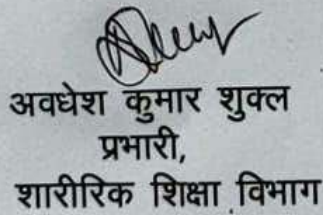 अवधेश कुमार शुक्ल
प्रभारी,
शारीरिक शिक्षा विभाग